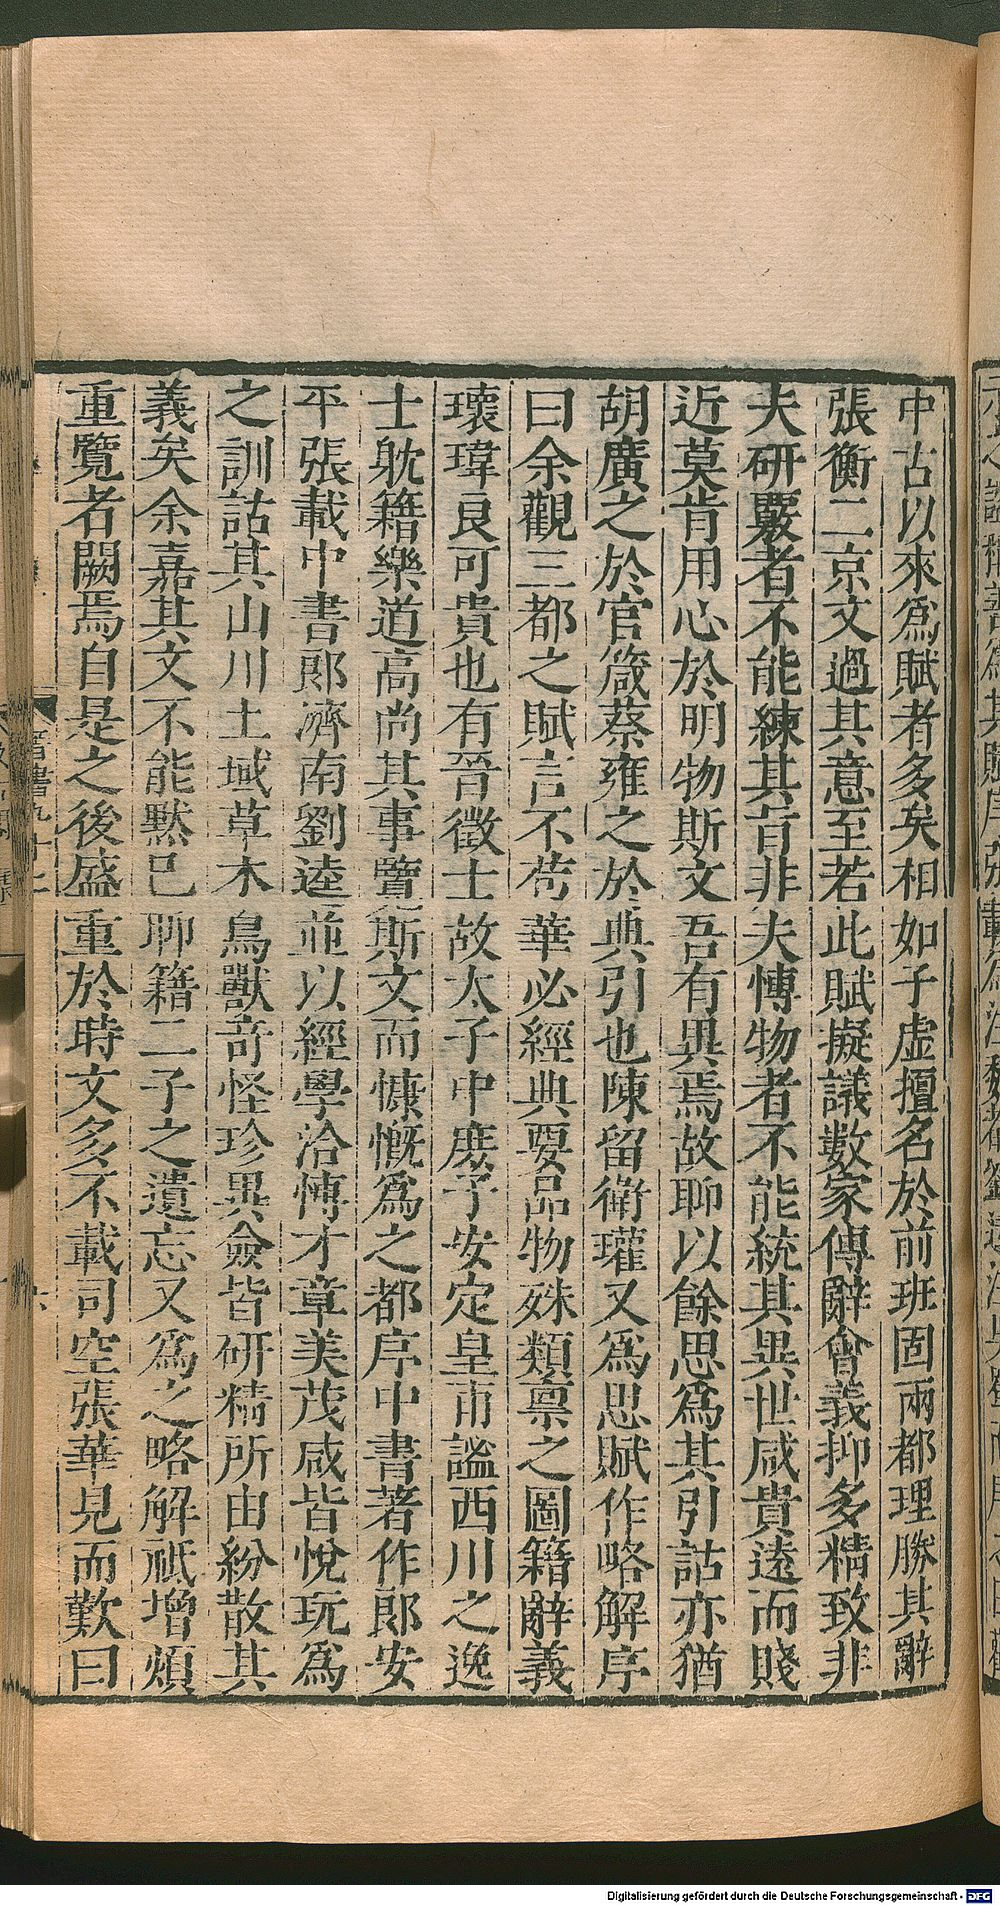 中古以來爲賦者多矣相如子虛擅名於前班固兩都理勝其辭
張衡二京文過其意至若此賦擬議數家傅辭會義抑多精致非
夫研覈者不能練其旨非夫博物者不能統其異世咸貴遠而賤
近莫肯用心於明物斯文吾有異焉故聊以餘思爲其引詁亦猶
胡廣之於官箴蔡雍之於典引也陳留衛瓘又爲思賦作略解序
曰余觀三都之賦言不苟華必經典要品物殊類禀之圖籍辭義
瓌瑋良可貴也有晉徵士故太子中庶子安定皇甫謐西川之逸
士耽籍樂道高尚其事覽斯文而慷慨爲之都序中書著作郎安
平張載中書郎濟南劉逵並以經學洽博才章美茂咸皆悅玩爲
之訓詁其山川土域草木鳥獸奇怪珍異僉皆研精所由紛散其
義矣余嘉其文不能黙已聊籍二子之遺忘又爲之略解祗增煩
重覽者闕焉自是之後盛重於時文多不載司空張華見而歎曰
Digitalisierung gefördert durch die Deutsche Forschungsgemeinschaft - DFG